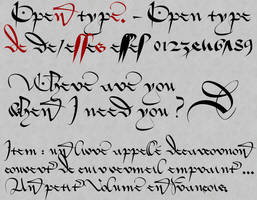 Opend type. - Open type
de de/esses essef 0123456789
Where are you
when I need you ? D
Item : ung livre appellé decameron
couvert de cuir vermeil empraint ...
Ung petit Volume en francois